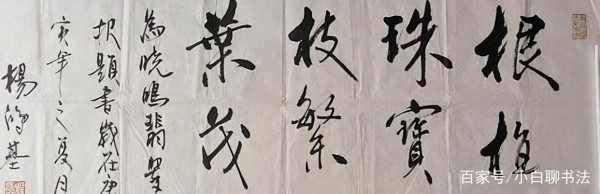 根植
珠寶
枝繁
葉茂
為晓鳴翡翠
报題書歲在庚
寅年之夏月
楊鴻基
百家号/小白聊书法